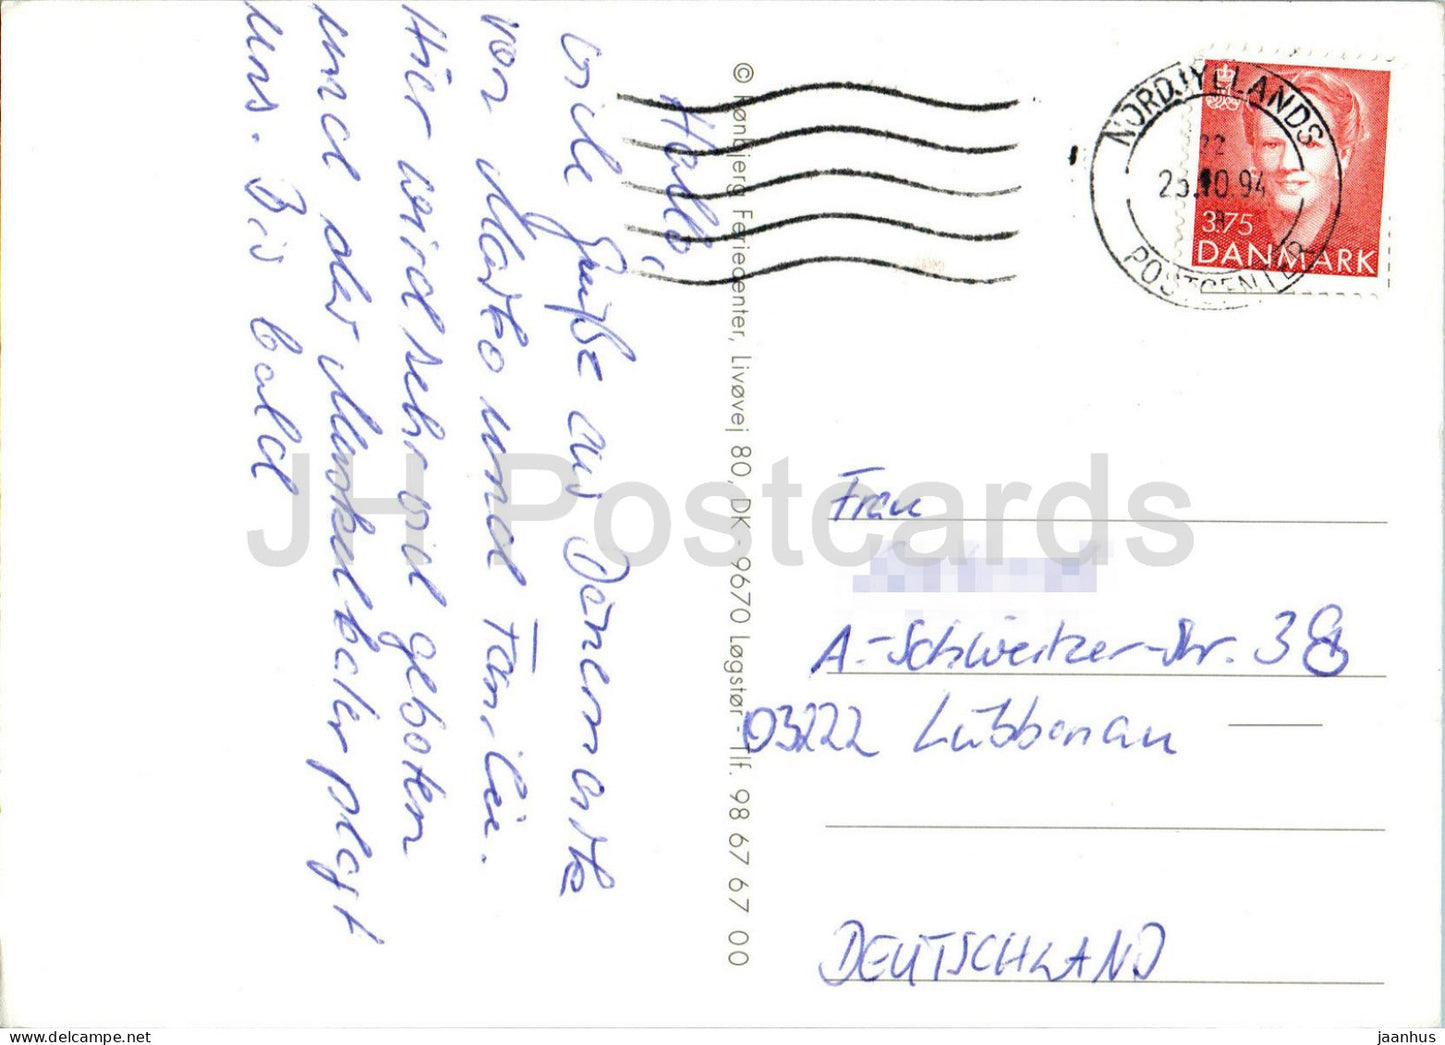 Hallo,
viele Grüße aus Dänemark
von Marko und Familie.
Hier wird sehr viel geboten
und der Muskelkater plagt
uns. Bis bald
© Rønbjerg Feriecenter, Livøvej 80, DK - 9670 Løgstør - Tlf. 98 67 67 00
NORDJYLLANDS
22
10.94
POSTCENTER
3.75
DANMARK
Frau
A.-Schweitzer-Str. 38
03222 Lübbenau
DEUTSCHLAND
JH Postcards
jaanhus